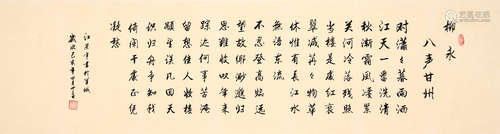 柳永
八声甘州
对潇々暮雨洒
江天一番洗清
秋渐霜风凄紧
关河冷落残照
当楼是处红衰
翠减苒々物华
休惟有长江水
无语东流
不忍登高临远
望故乡渺邈归
思难收叹年来
踪迹何事苦淹
留想佳人妆楼
颙望误几回天
际识归舟争知我
倚阑干处正恁
凝愁